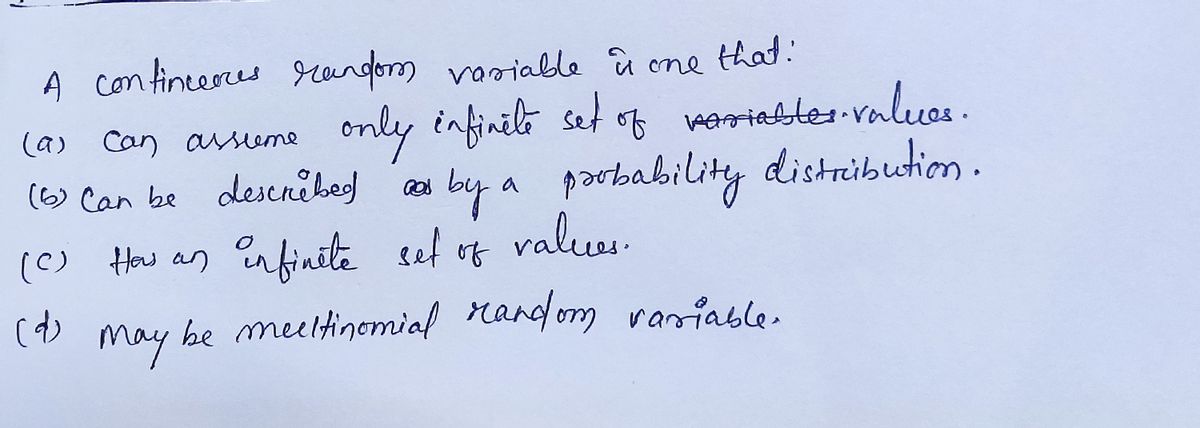 A continuous random variable is one that:
(a) Can assume only infinite set of variables. values.
(b) Can be described as by a probability distribution.
(c) Has an infinite set of values.
(d) May be multinomial random variable.